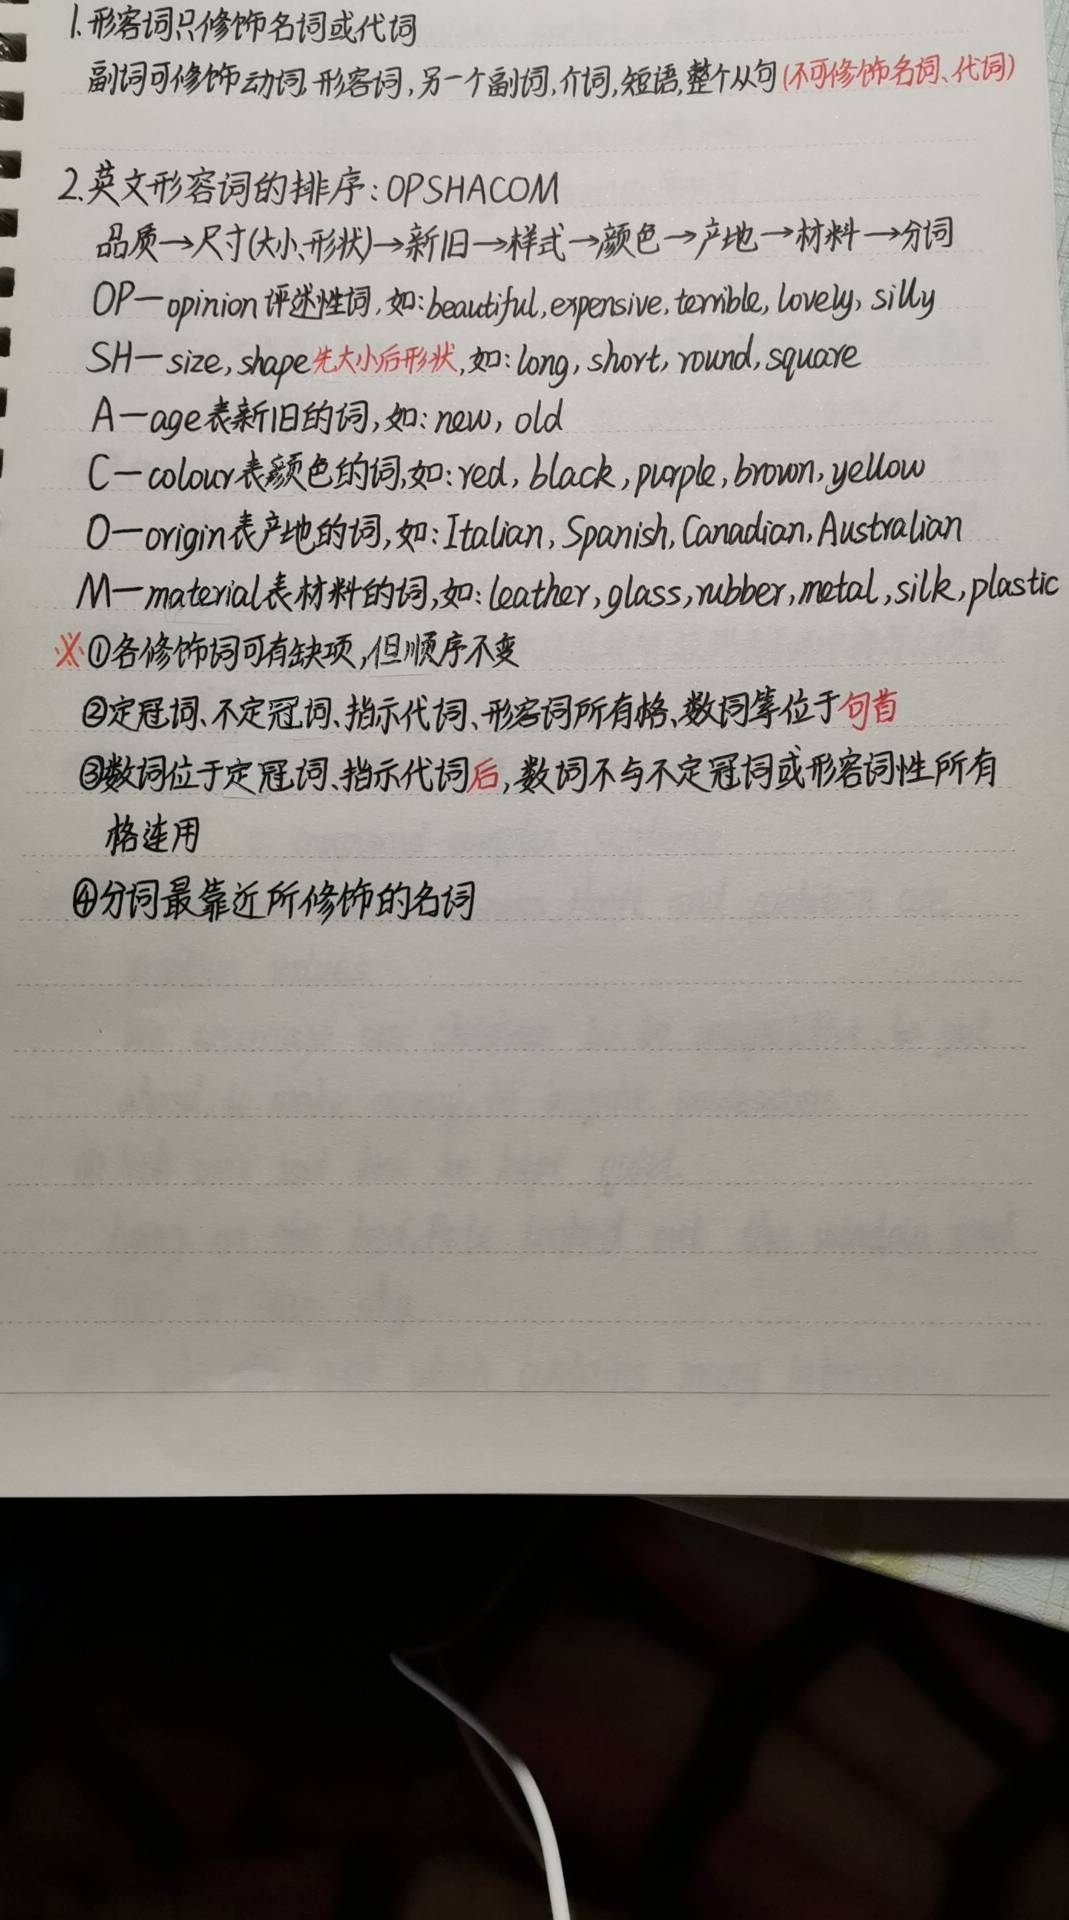 1.形容词只修饰名词或代词
副词可修饰动词,形容词,另一个副词,介词,短语,整个从句(不可修饰名词、代词)
2.英文形容词的排序:OPSHACOM
品质→尺寸(大小、形状)→新旧→样式→颜色→产地→材料→分词
OP—opinion评述性词,如:beautiful,expensive,terrible,lovely,silly
SH—size,shape先大小后形状,如:long,short,round,square
A—age表新旧的词,如:new,old
C—colour表颜色的词,如:red,black,purple,brown,yellow
O—origin表产地的词,如:Italian,Spanish,Canadian,Australian
M—material表材料的词,如:leather,glass,rubber,metal,silk,plastic
※①各修饰词可有缺项,但顺序不变
②定冠词、不定冠词、指示代词、形容词所有格、数词等位于句首
③数词位于定冠词、指示代词后,数词不与不定冠词或形容词性所有
格连用
④分词最靠近所修饰的名词